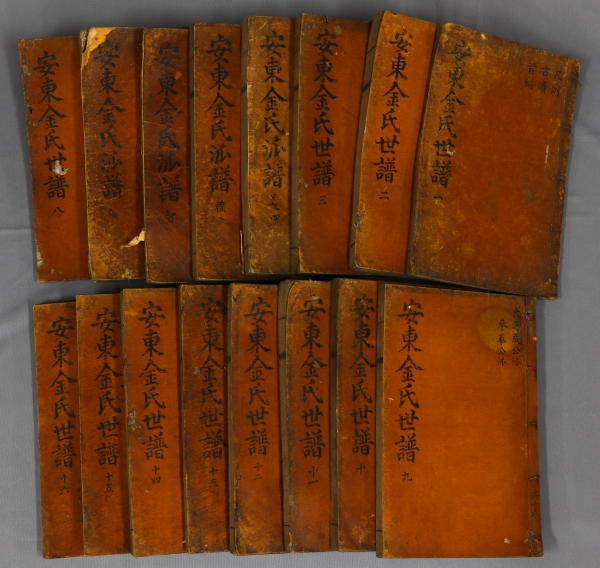 安東金氏世譜 一
安東金氏世譜 二
安東金氏世譜 三
安東金氏派譜
安東金氏派譜 禮
安東金氏派譜
安東金氏派譜
安東金氏世譜 八
安東金氏世譜 九
安東金氏世譜 十
安東金氏世譜 十一
安東金氏世譜 十二
安東金氏世譜 十三
安東金氏世譜 十四
安東金氏世譜 十五
安東金氏世譜 十六